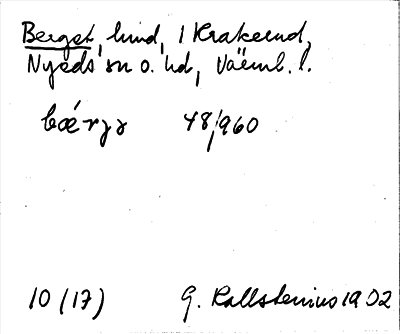 Berget, hmd, i Krakerud,
Nyeds sn o. hd, Värml. l.
bæ´rʒɜ 48/960
10 (17) G. Kallstenius 1902